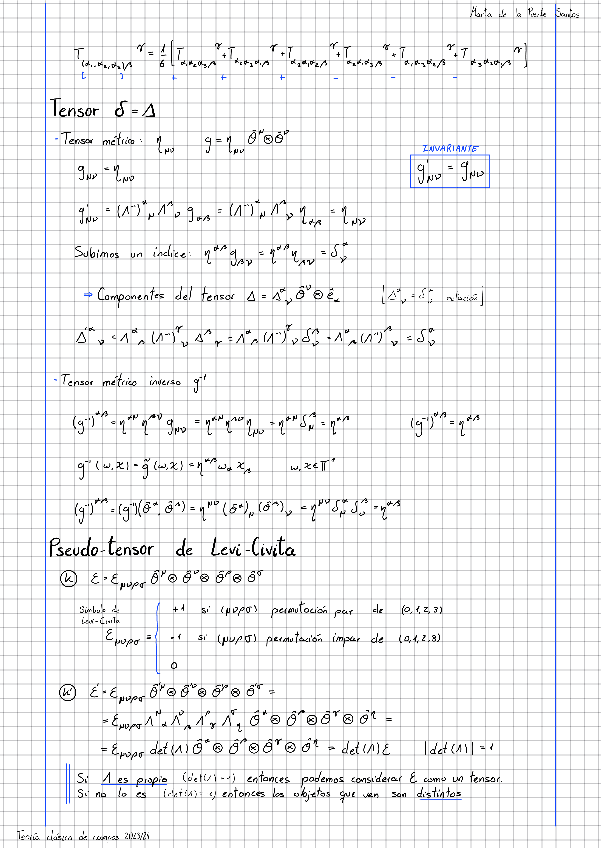 Marta de la Puente Santos
T_{(α₁,α₂,α₃)β}^γ = 1/6 [T_{α₁α₂α₃β}^γ + T_{α₂α₃α₁β}^γ + T_{α₃α₁α₂β}^γ + T_{α₂α₁α₃β}^γ + T_{α₁α₃α₂β}^γ + T_{α₃α₂α₁β}^γ]
[ ] + + + - - -
Tensor δ = Δ
- Tensor métrico: η_{μν} g = η_{μν} θ̂^μ ⊗ θ̂^ν
INVARIANTE
g_{μν} = η_{μν} g'_{μν} = g_{μν}
g'_{μν} = (Λ⁻¹)^α_μ Λ^β_ν g_{αβ} = (Λ⁻¹)^α_μ Λ^β_ν η_{αβ} = η_{μν}
Subimos un índice: η^{αβ} g_{βν} = η^{αβ} η_{βν} = δ^α_ν
⇒ Componentes del tensor Δ = Δ^α_ν θ̂^ν ⊗ ê_α [Δ^α_ν = δ^α_ν notación]
Δ'^α_ν = Λ^α_β (Λ⁻¹)^γ_ν Δ^β_γ = Λ^α_β (Λ⁻¹)^γ_ν δ^β_γ = Λ^α_β (Λ⁻¹)^β_ν = δ^α_ν
- Tensor métrico inverso g⁻¹
(g⁻¹)^{αβ} = η^{αμ} η^{βν} g_{μν} = η^{αμ} η^{βν} η_{μν} = η^{αμ} δ^β_μ = η^{αβ} (g⁻¹)^{αβ} = η^{αβ}
g⁻¹(ω,χ) = g̃(ω,χ) = η^{αβ} ω_α χ_β ω,χ ∈ Π*
(g⁻¹)^{αβ} = (g⁻¹)(θ̂^α, θ̂^β) = η^{μν} (θ̂^α)_μ (θ̂^β)_ν = η^{μν} δ^α_μ δ^β_ν = η^{αβ}
Pseudo-tensor de Levi-Civita
(K) ε = ε_{μνρσ} θ̂^μ ⊗ θ̂^ν ⊗ θ̂^ρ ⊗ θ̂^σ
Símbolo de
Levi-Civita
ε_{μνρσ} = { +1 si (μνρσ) permutación par de (0,1,2,3)
-1 si (μνρσ) permutación impar de (0,1,2,3)
0
(K') ε' = ε_{μνρσ} θ̂'^μ ⊗ θ̂'^ν ⊗ θ̂'^ρ ⊗ θ̂'^σ =
= ε_{μνρσ} Λ^μ_α Λ^ν_β Λ^ρ_γ Λ^σ_η θ̂^α ⊗ θ̂^β ⊗ θ̂^γ ⊗ θ̂^η =
= ε_{μνρσ} det(Λ) θ̂^α ⊗ θ̂^β ⊗ θ̂^γ ⊗ θ̂^η = det(Λ) ε |det(Λ)| = 1
Si Λ es propio (det(Λ)=1) entonces podemos considerar ε como un tensor.
Si no lo es entonces los objetos que ven son distintos
Teoría clásica de campos 2023/24